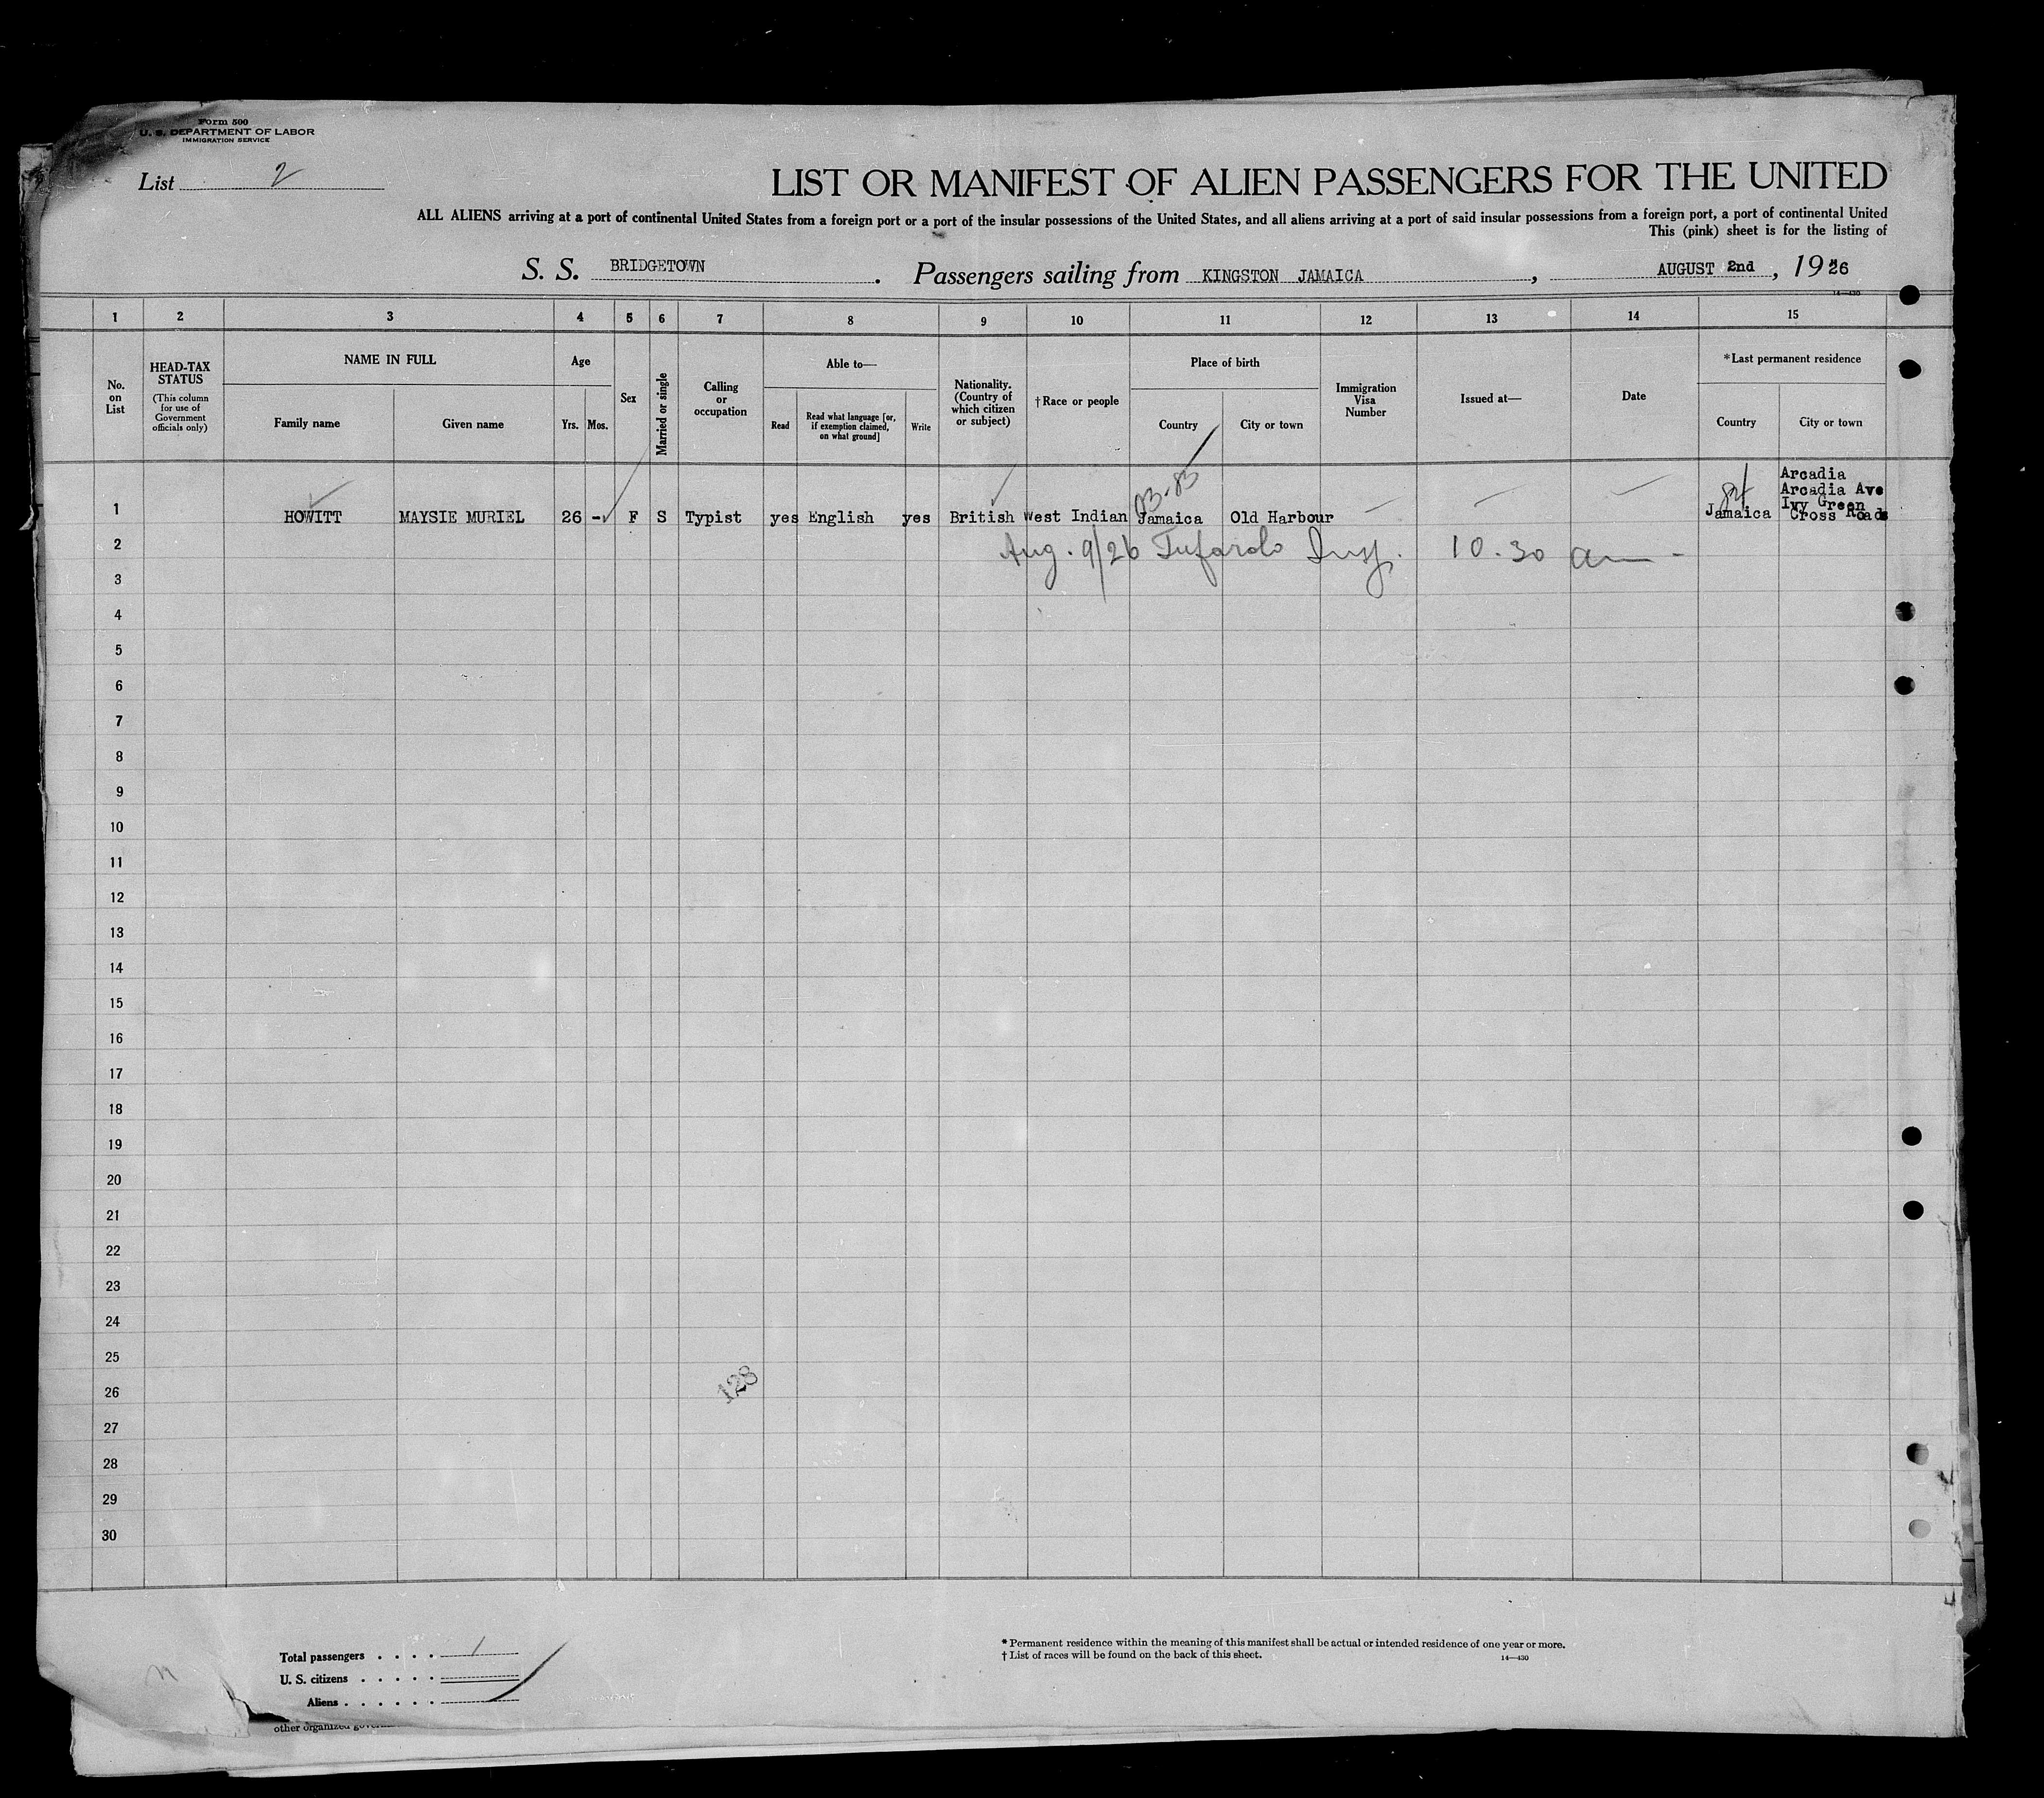 Form 500
U. S. DEPARTMENT OF LABOR
IMMIGRATION SERVICE
List 2
LIST OR MANIFEST OF ALIEN PASSENGERS FOR THE UNITED
ALL ALIENS arriving at a port of continental United States from a foreign port or a port of the insular possessions of the United States, and all aliens arriving at a port of said insular possessions from a foreign port, a port of continental United
This (pink) sheet is for the listing of
S. S. BRIDGETOWN. Passengers sailing from KINGSTON JAMAICA, AUGUST 2nd, 1926
14—430
1 2 3 4 5 6 7 8 9 10 11 12 13 14 15
No. on List
HEAD-TAX STATUS
(This column for use of Government officials only)
NAME IN FULL
Family name
Given name
Age
Yrs.
Mos.
Sex
Married or single
Calling or occupation
Able to—
Read
Read what language [or, if exemption claimed, on what ground]
Write
Nationality. (Country of which citizen or subject)
†Race or people
Place of birth
Country
City or town
Immigration Visa Number
Issued at—
Date
*Last permanent residence
Country
City or town
1 HOWITT MAYSIE MURIEL 26 - F S Typist yes English yes British West Indian Jamaica Old Harbour Jamaica
Arcadia
Arcadia Ave
Ivy Green
Cross Roads
2 Aug. 9/26 Tufarolo Insp. 10.30 am -
3
4
5
6
7
8
9
10
11
12
13
14
15
16
17
18
19
20
21
22
23
24
25
26 128
27
28
29
30
Total passengers . . . . 1
U. S. citizens . . . . .
Aliens . . . . . .
* Permanent residence within the meaning of this manifest shall be actual or intended residence of one year or more.
† List of races will be found on the back of this sheet.
14—430
other organized